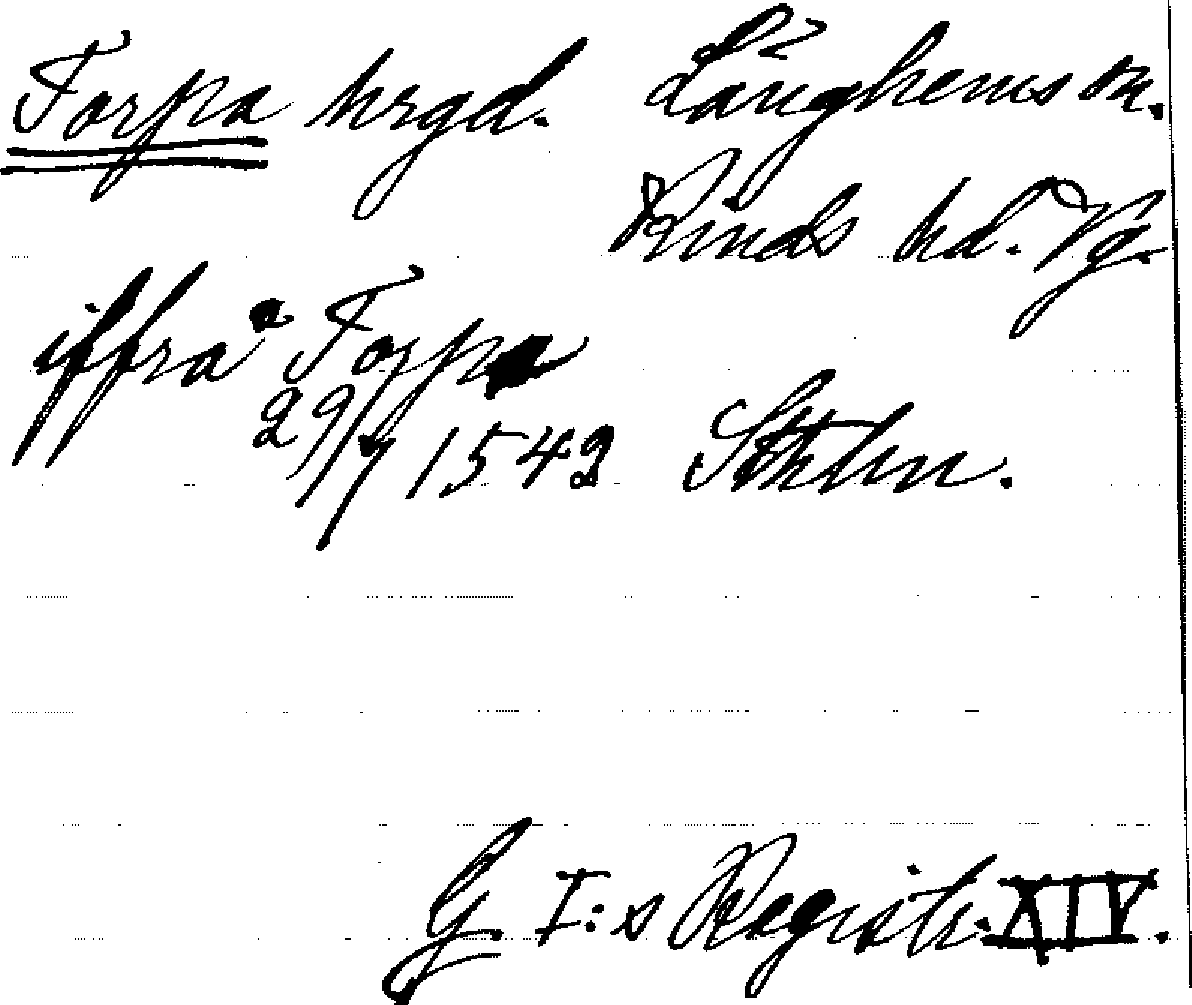 Torpa hrgd. Länghems sn.
Kinds hd. Vg.
iffrå Torpa
29/7 1542 Sthlm.
G. I:s Registr. XIV.